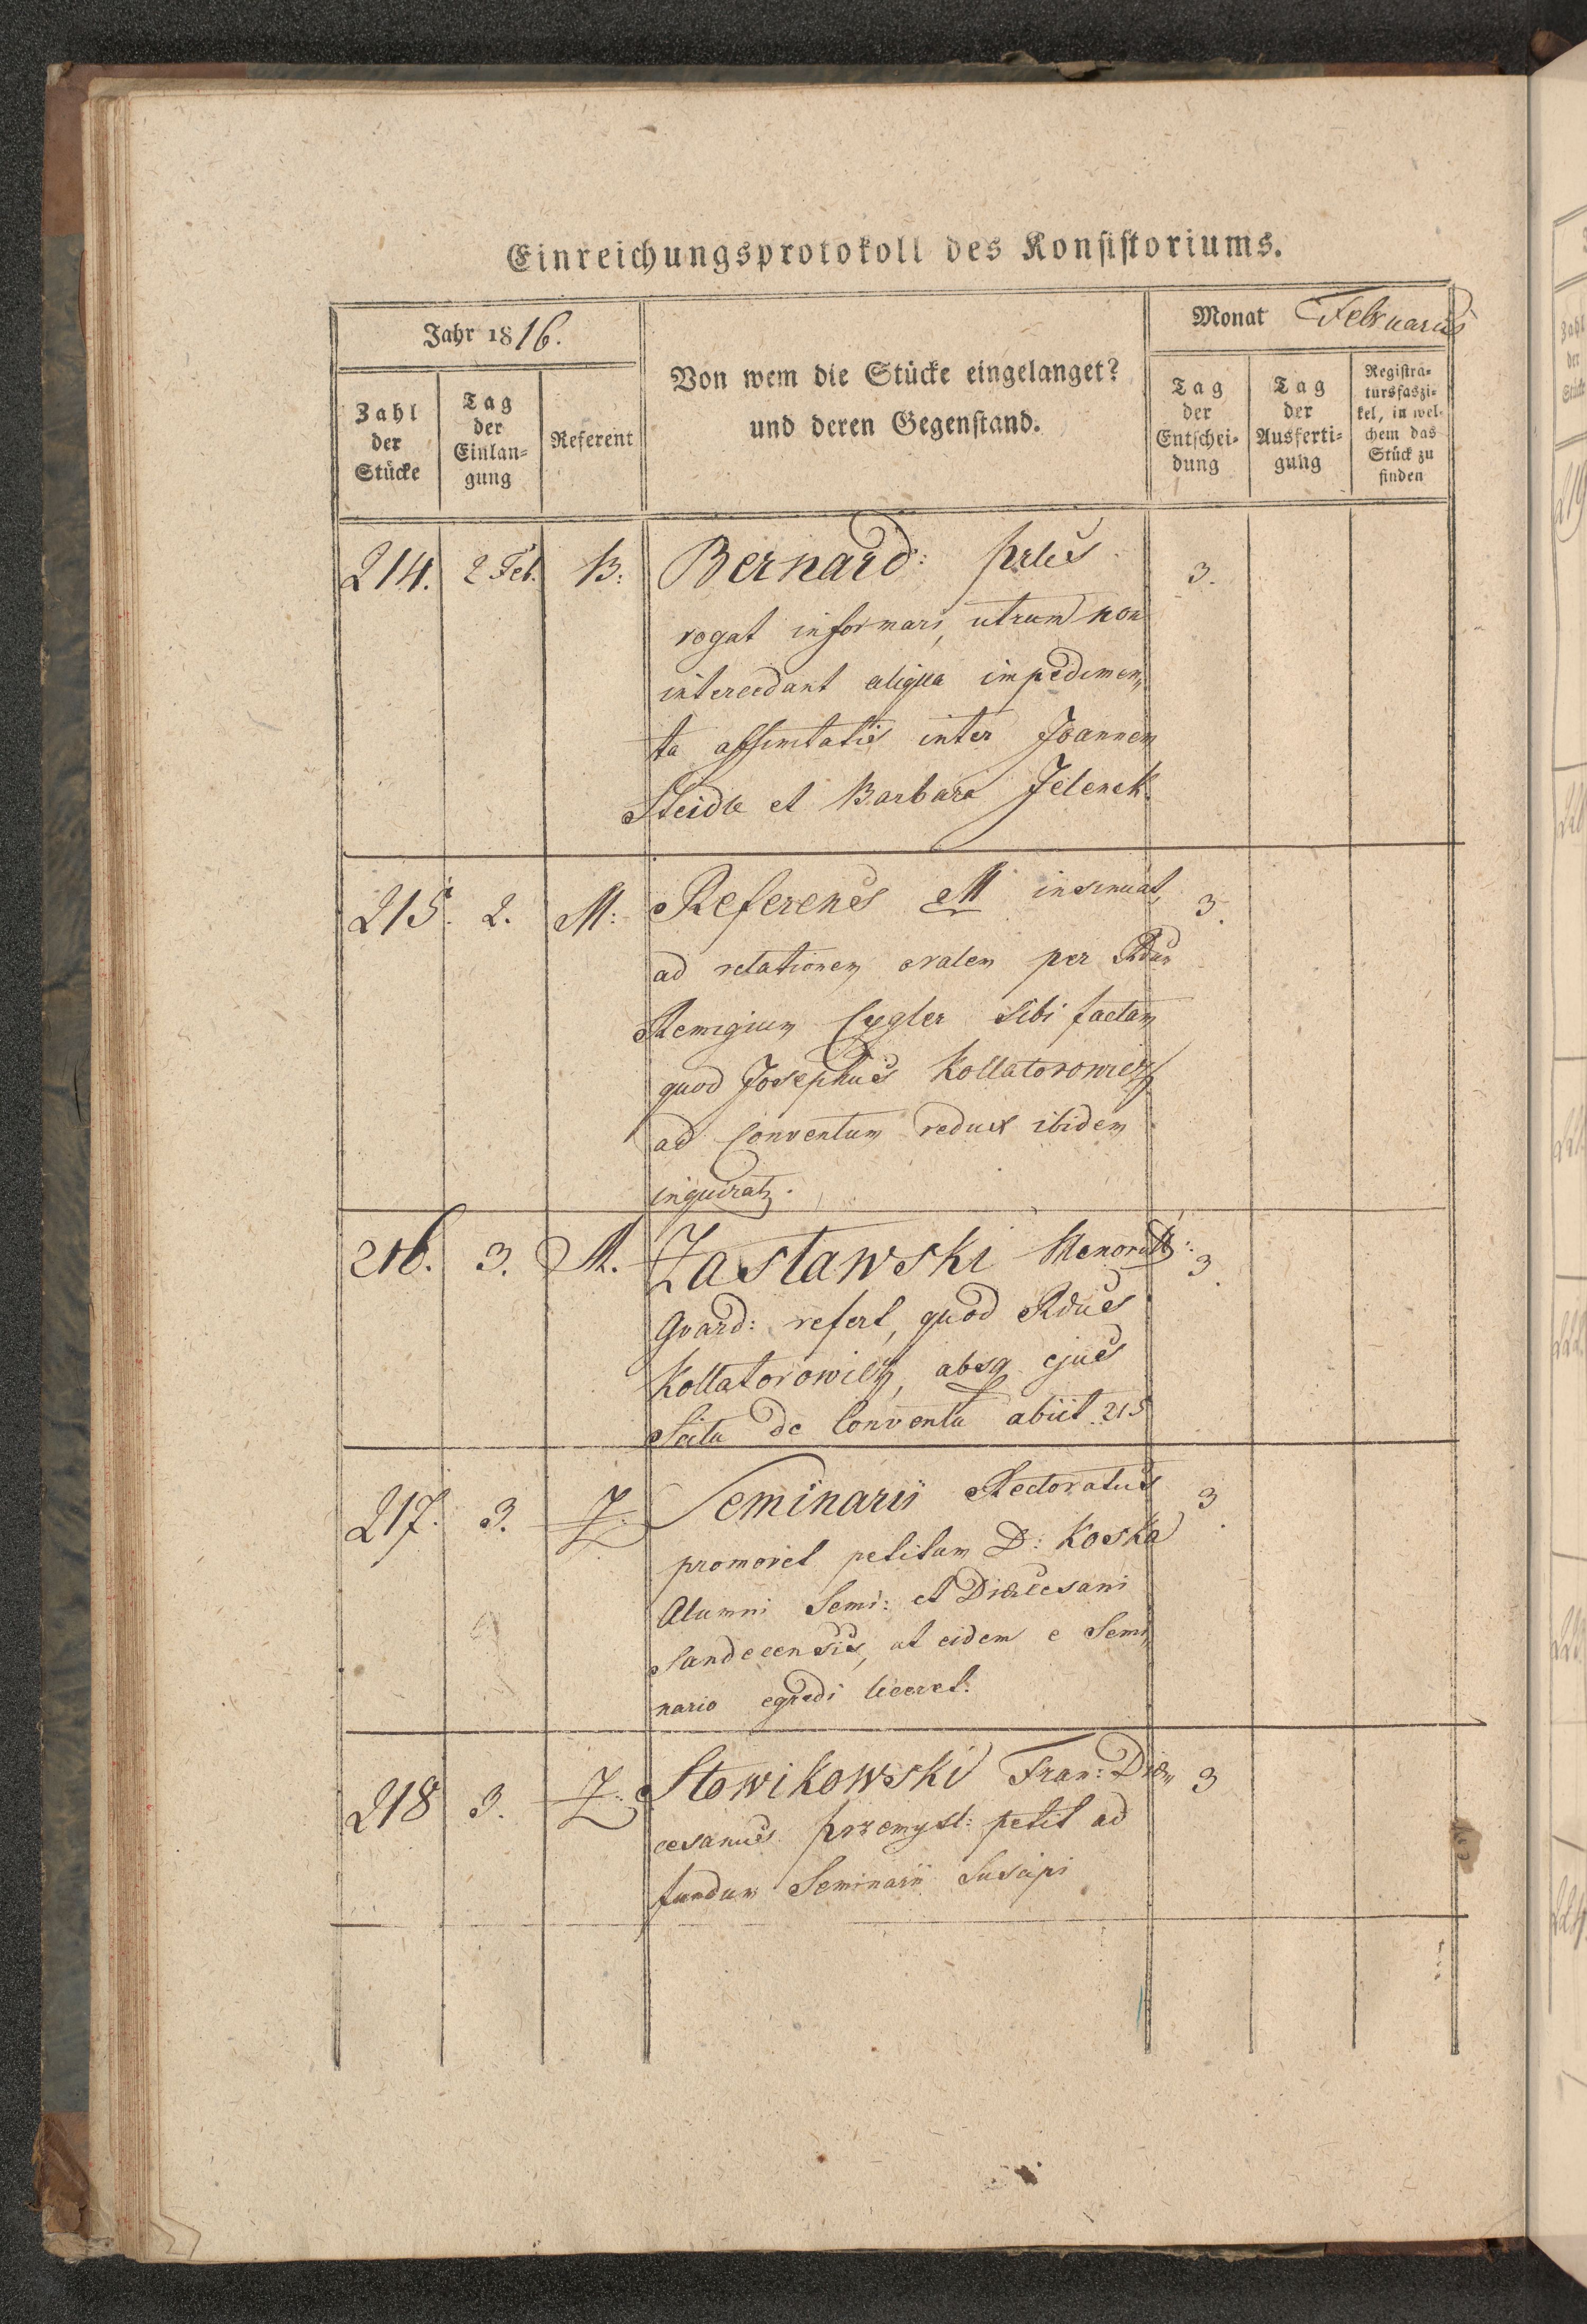 Einreichungsprotokoll des Konsistoriums.
Jahr 1816.
Von wem die Stücke eingelanget?
und deren Gegenstand.
Monat Februarius
Zahl der Stücke
Tag der Einlan-gung
Referent
Tag der Entschei-dung
Tag der Ausferti-gung
Registra-tursfaszi-kel, in wel-chem das Stück zu finden
214. 2 Feb. B: Bernard: 3.
rogat informari, utrum non
intercedant aliqua impedimen„
ta affinitatis inter Joannem
Steidle et Barbara Jelenek.
215. 2. M: Referens M insinuat, 3.
ad relationem oralem per Rdum
Remigium Cygler sibi factam
quod Josephus Kollatorowicz
ad Conventum redux ibidem
inquiratz.
216. 3. M. Zaslawski Menorit: 3.
Guard: refert, quod Rdus
Kollatorowicz, absq ejus
Scitu de Conventu abiit 215
217. 3. Z. Seminarii Rectoratus 3.
promovet petitum D: Koska
Alumni Semi: et Diœcesani
Sandecensis, ut eidem e Semi„
nario egredi liceret.
218 3. Z. Slowikowski Fran: Diœ„ 3
cesanus Przemysl: petit ad
fundum Seminarii Suscipi